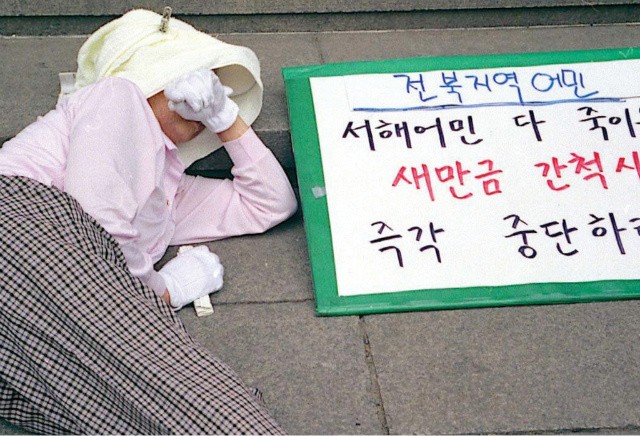 전북지역 어민
서해어민 다 죽이
새만금 간척사
즉각 중단하